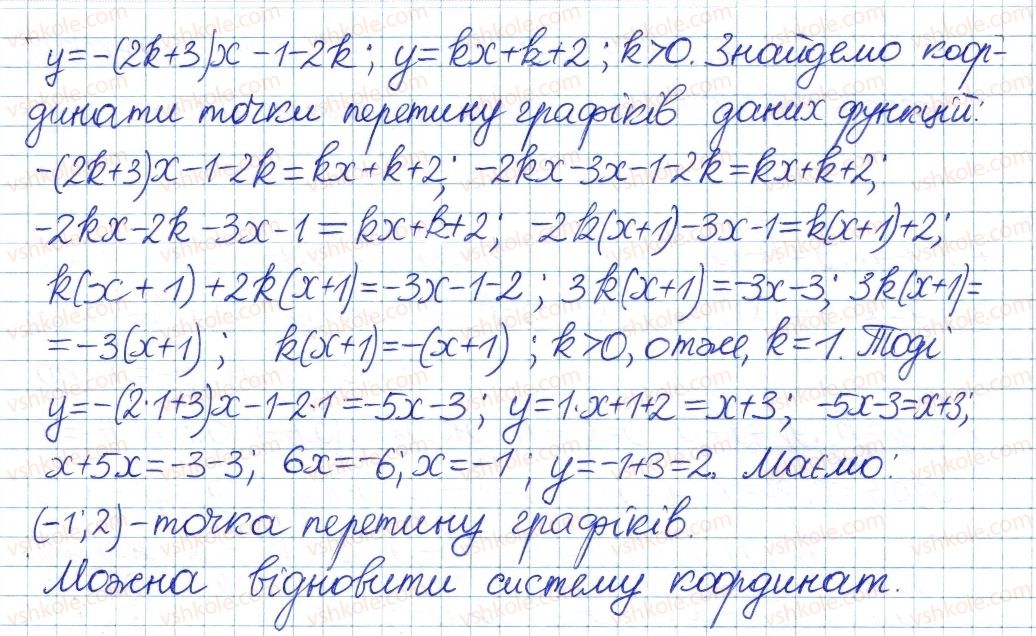 y=-(2k+3)x-1-2k; y=kx+k+2; k>0. Знайдемо коор-
динати точки перетину графіків даних функцій:
-(2k+3)x-1-2k=kx+k+2; -2kx-3x-1-2k=kx+k+2;
-2kx-2k-3x-1=kx+k+2; -2k(x+1)-3x-1=k(x+1)+2;
k(x+1)+2k(x+1)=-3x-1-2; 3k(x+1)=-3x-3; 3k(x+1)=
=-3(x+1); k(x+1)=-(x+1); k>0, отже, k=1. Тоді
y=-(2·1+3)x-1-2·1=-5x-3; y=1·x+1+2=x+3; -5x-3=x+3;
x+5x=-3-3; 6x=-6; x=-1; y=-1+3=2. Маємо:
(-1;2)-точка перетину графіків.
Можна відновити систему координат.